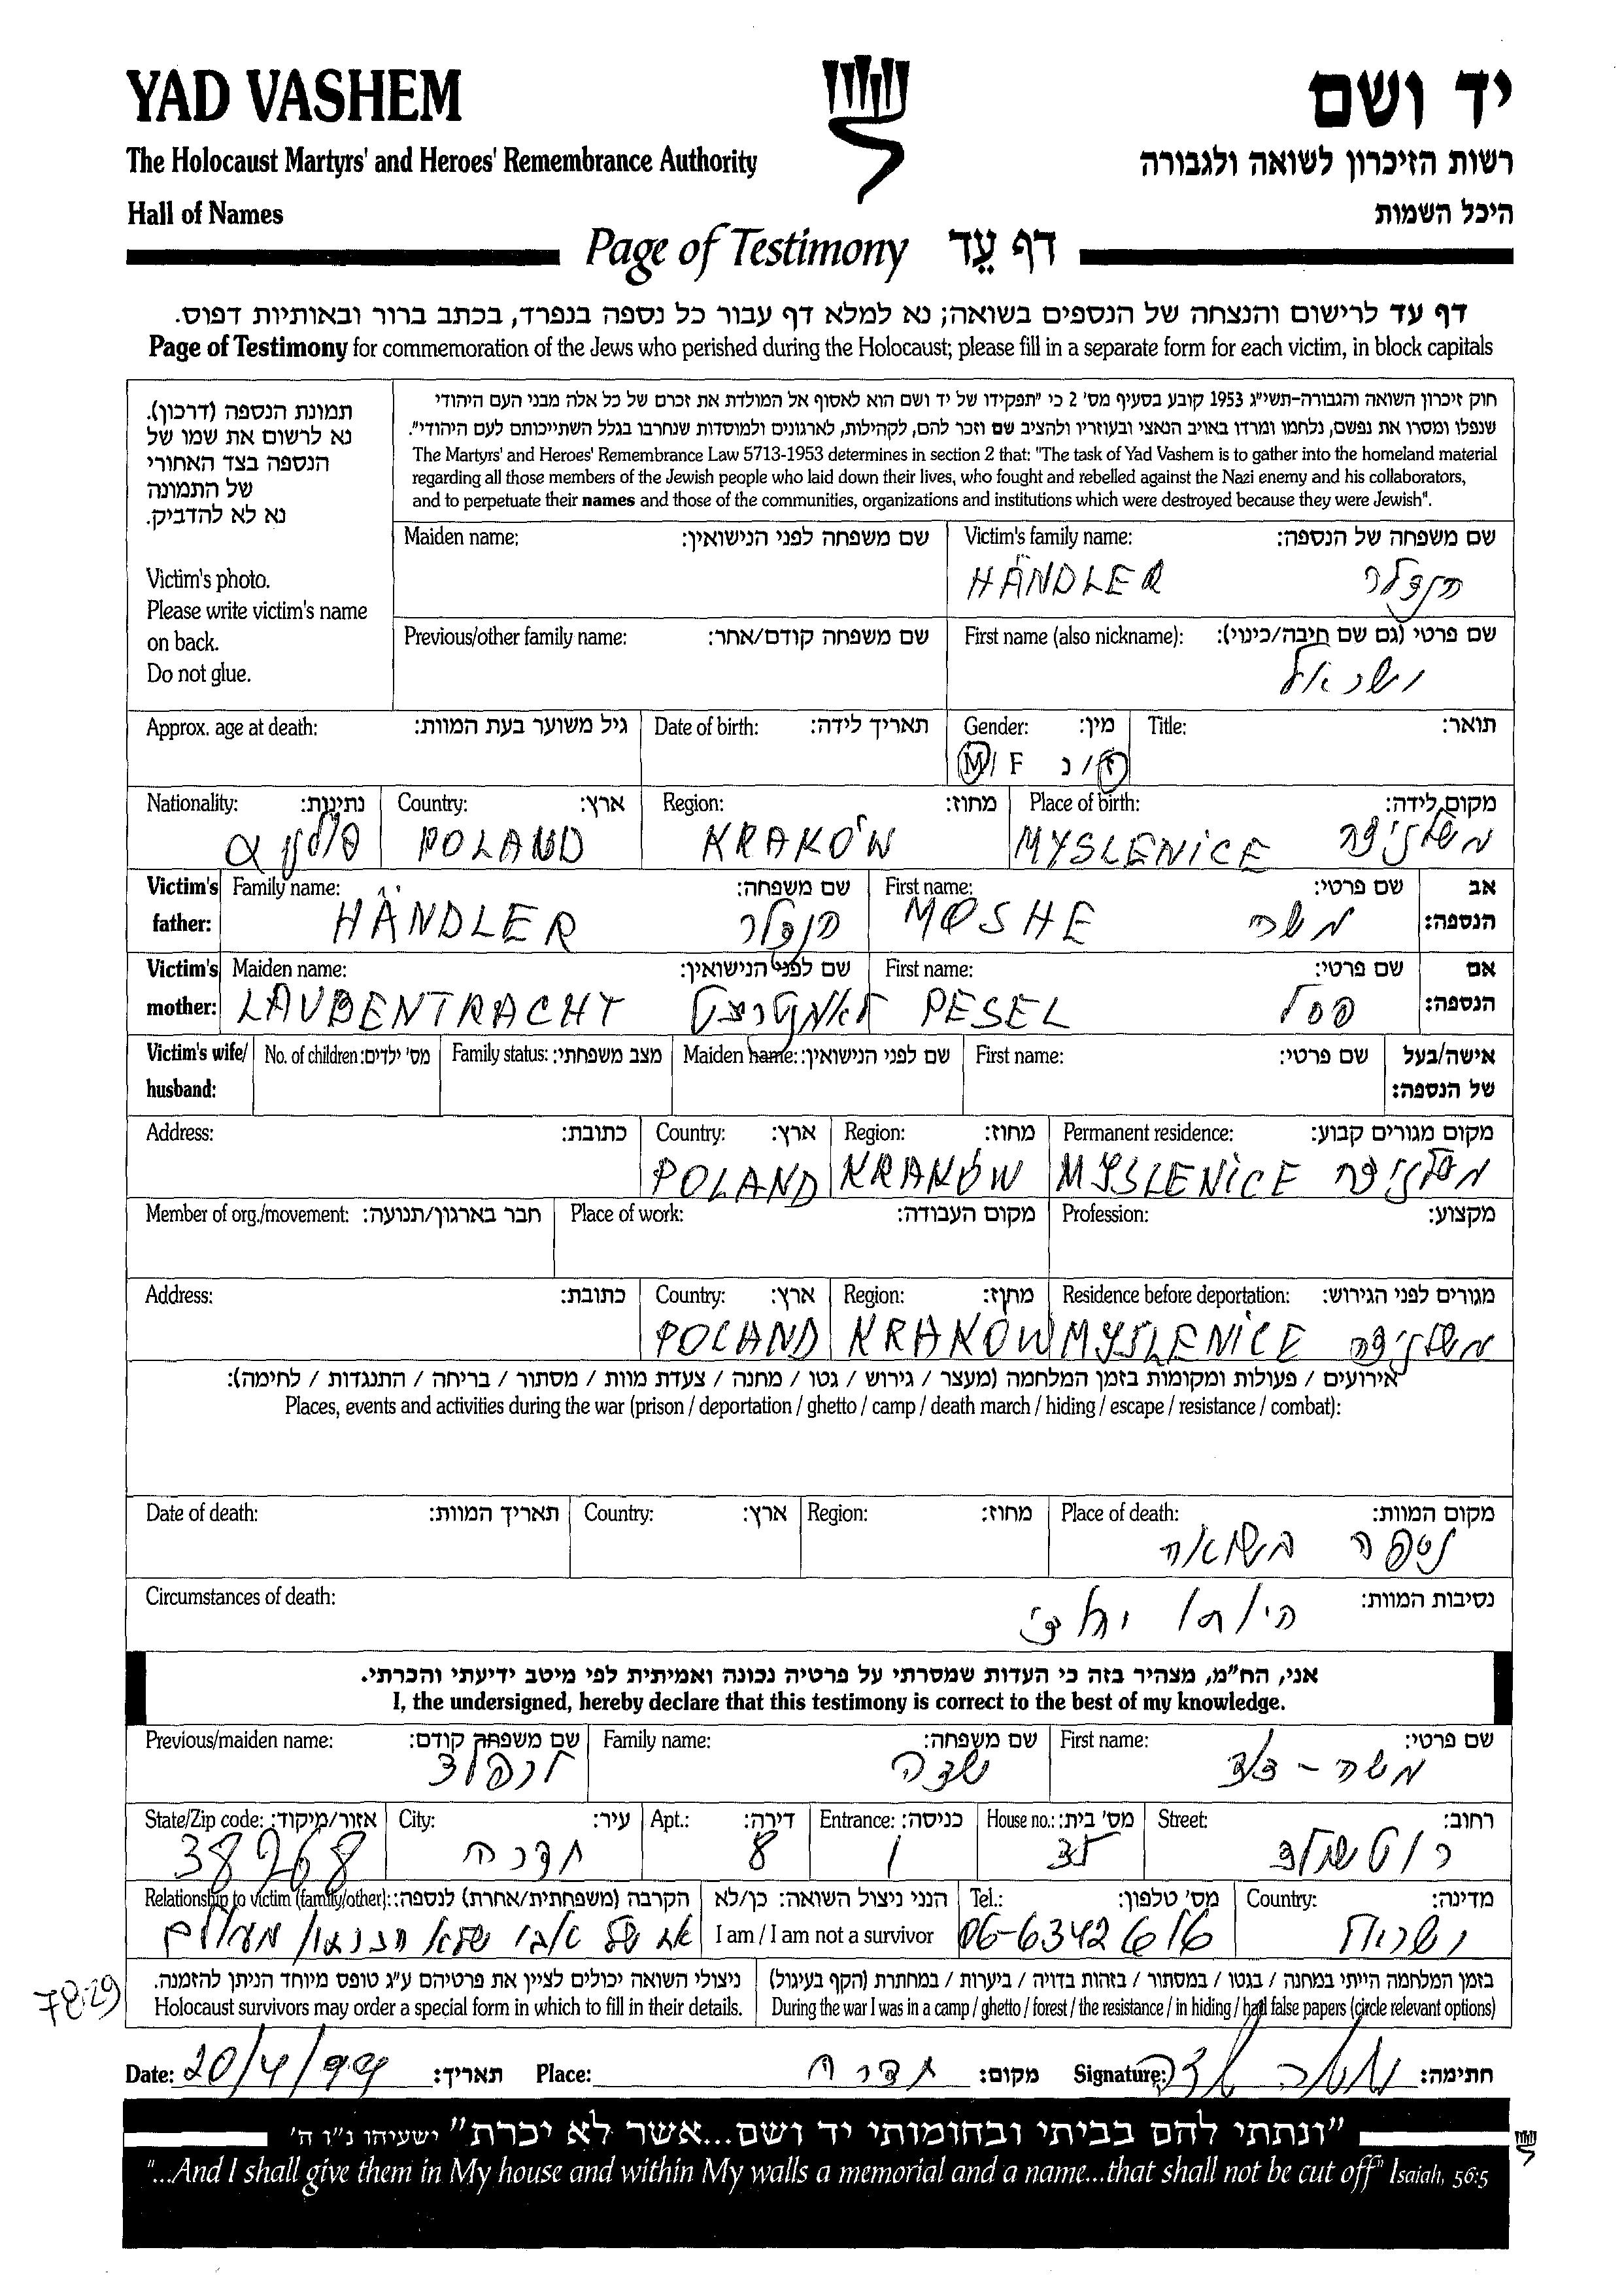 YAD VASHEM
יד ושם
The Holocaust Martyrs' and Heroes' Remembrance Authority
רשות הזיכרון לשואה ולגבורה
Hall of Names
היכל השמות
Page of Testimony דף עֵד
דף עד לרישום והנצחה של הנספים בשואה; נא למלא דף עבור כל נספה בנפרד, בכתב ברור ובאותיות דפוס.
Page of Testimony for commemoration of the Jews who perished during the Holocaust; please fill in a separate form for each victim, in block capitals
תמונת הנספה (דרכון).
נא לרשום את שמו של
הנספה בצד האחורי
של התמונה
נא לא להדביק.
Victim's photo.
Please write victim's name
on back.
Do not glue.
חוק זיכרון השואה והגבורה-תשי"ג 1953 קובע בסעיף מס' 2 כי "תפקידו של יד ושם הוא לאסוף אל המולדת את זכרם של כל אלה מבני העם היהודי
שנפלו ומסרו את נפשם, נלחמו ומרדו באויב הנאצי ובעוזריו ולהציב שם וזכר להם, לקהילות, לארגונים ולמוסדות שנחרבו בגלל השתייכותם לעם היהודי".
The Martyrs' and Heroes' Remembrance Law 5713-1953 determines in section 2 that: "The task of Yad Vashem is to gather into the homeland material
regarding all those members of the Jewish people who laid down their lives, who fought and rebelled against the Nazi enemy and his collaborators,
and to perpetuate their names and those of the communities, organizations and institutions which were destroyed because they were Jewish".
Maiden name: שם משפחה לפני הנישואין: Victim's family name: שם משפחה של הנספה:
HÄNDLER הנדלר
Previous/other family name: שם משפחה קודם/אחר: First name (also nickname): שם פרטי (גם שם חיבה/כינוי):
ישראל
Approx. age at death: גיל משוער בעת המוות: Date of birth: תאריך לידה: Gender: מין: Title: תואר:
M/F ז/נ
Nationality: נתינות: Country: ארץ: Region: מחוז: Place of birth: מקום לידה:
POLAND KRAKÓW MYSLENICE מישלניצה
Victim's father: Family name: שם משפחה: First name: שם פרטי: אב הנספה:
HÄNDLER הנדלר MOSHE משה
Victim's mother: Maiden name: שם לפני הנישואין: First name: שם פרטי: אם הנספה:
LAUBENTRACHT PESEL פסל
Victim's wife/ husband: No. of children: מס' ילדים: Family status: מצב משפחתי: Maiden name: שם לפני הנישואין: First name: שם פרטי: אישה/בעל של הנספה:
Address: כתובת: Country: ארץ: Region: מחוז: Permanent residence: מקום מגורים קבוע:
POLAND KRAKÓW MYSLENICE מישלניצה
Member of org./movement: חבר בארגון/תנועה: Place of work: מקום העבודה: Profession: מקצוע:
Address: כתובת: Country: ארץ: Region: מחוז: Residence before deportation: מגורים לפני הגירוש:
POLAND KRAKÓW MYSLENICE מישלניצה
אירועים / פעולות ומקומות בזמן המלחמה (מעצר / גירוש / גטו / מחנה / צעדת מוות / מסתור / בריחה / התנגדות / לחימה):
Places, events and activities during the war (prison / deportation / ghetto / camp / death march / hiding / escape / resistance / combat):
Date of death: תאריך המוות: Country: ארץ: Region: מחוז: Place of death: מקום המוות:
נספה בשואה
Circumstances of death: נסיבות המוות:
היותו יהודי
אני, הח"מ, מצהיר בזה כי העדות שמסרתי על פרטיה נכונה ואמיתית לפי מיטב ידיעתי והכרתי.
I, the undersigned, hereby declare that this testimony is correct to the best of my knowledge.
Previous/maiden name: שם משפחה קודם: Family name: שם משפחה: First name: שם פרטי:
לנפלד שדה משה - דוד
State/Zip code: אזור/מיקוד: City: עיר: Apt.: דירה: Entrance: כניסה: House no.: מס' בית: Street: רחוב:
38268 חדרה 8 1 רוטשילד
Relationship to victim (family/other): הקרבה (משפחתית/אחרת) לנספה: הנני ניצול השואה: כן/לא Tel.: מס' טלפון: Country: מדינה:
אח של אבי שלא הכרנו מעולם I am / I am not a survivor 06-6342616 ישראל
78:29
ניצולי השואה יכולים לציין את פרטיהם ע"ג טופס מיוחד הניתן להזמנה. בזמן המלחמה הייתי במחנה / בגטו / במסתור / בזהות בדויה / ביערות / במחתרת (הקף בעיגול)
Holocaust survivors may order a special form in which to fill in their details. During the war I was in a camp / ghetto / forest / the resistance / in hiding / had false papers (circle relevant options)
Date: 20/4/99 תאריך: Place: חדרה מקום: Signature: משה שדה חתימה:
"ונתתי להם בביתי ובחומותי יד ושם...אשר לא יכרת" ישעיהו נ"ו ה'
"...And I shall give them in My house and within My walls a memorial and a name...that shall not be cut off" Isaiah, 56:5